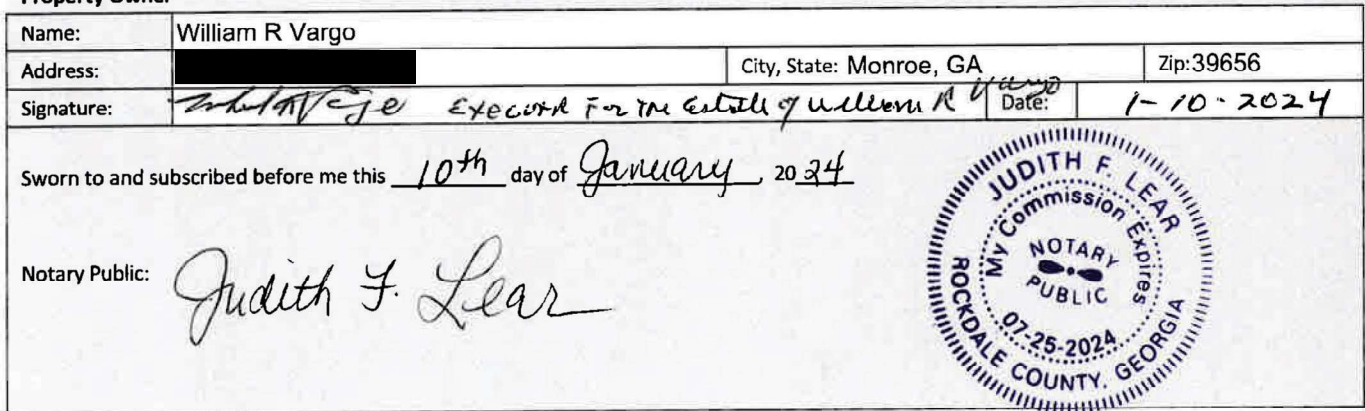 Property Owner
Name: William R Vargo
Address: City, State: Monroe, GA Zip:39656
Signature: Executor For The Estate of William R Vargo Date: 1-10-2024
Sworn to and subscribed before me this 10th day of January, 2024
Notary Public: Judith F. Lear
JUDITH F. LEAR
My Commission Expires
NOTARY
PUBLIC
07-25-2024
ROCKDALE COUNTY, GEORGIA